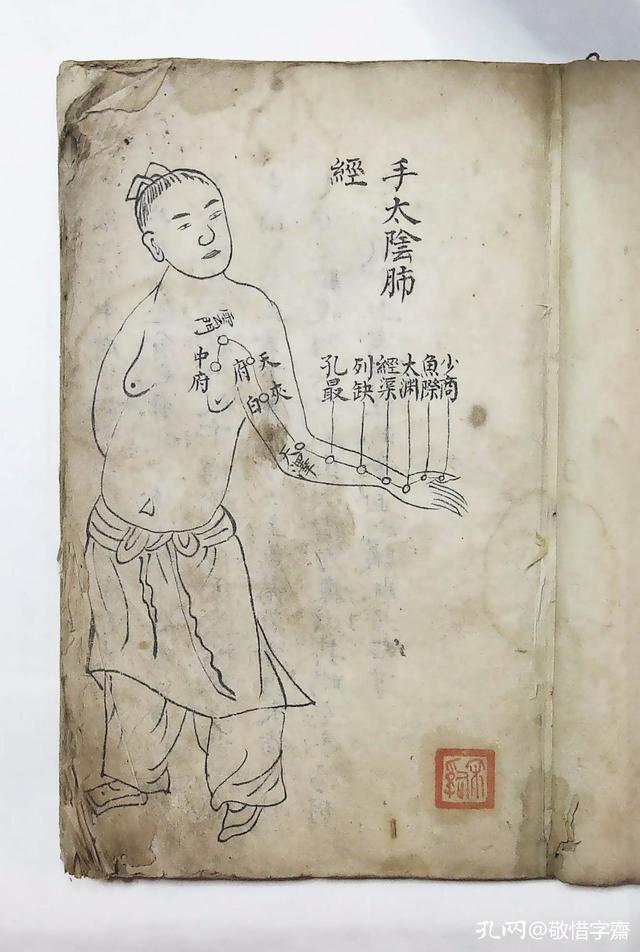 手太陰肺
經
少商
魚際
太渊
經渠
列缺
孔最
天府
夾白
天澤
雲門
中府
孔网@敬惜字齋